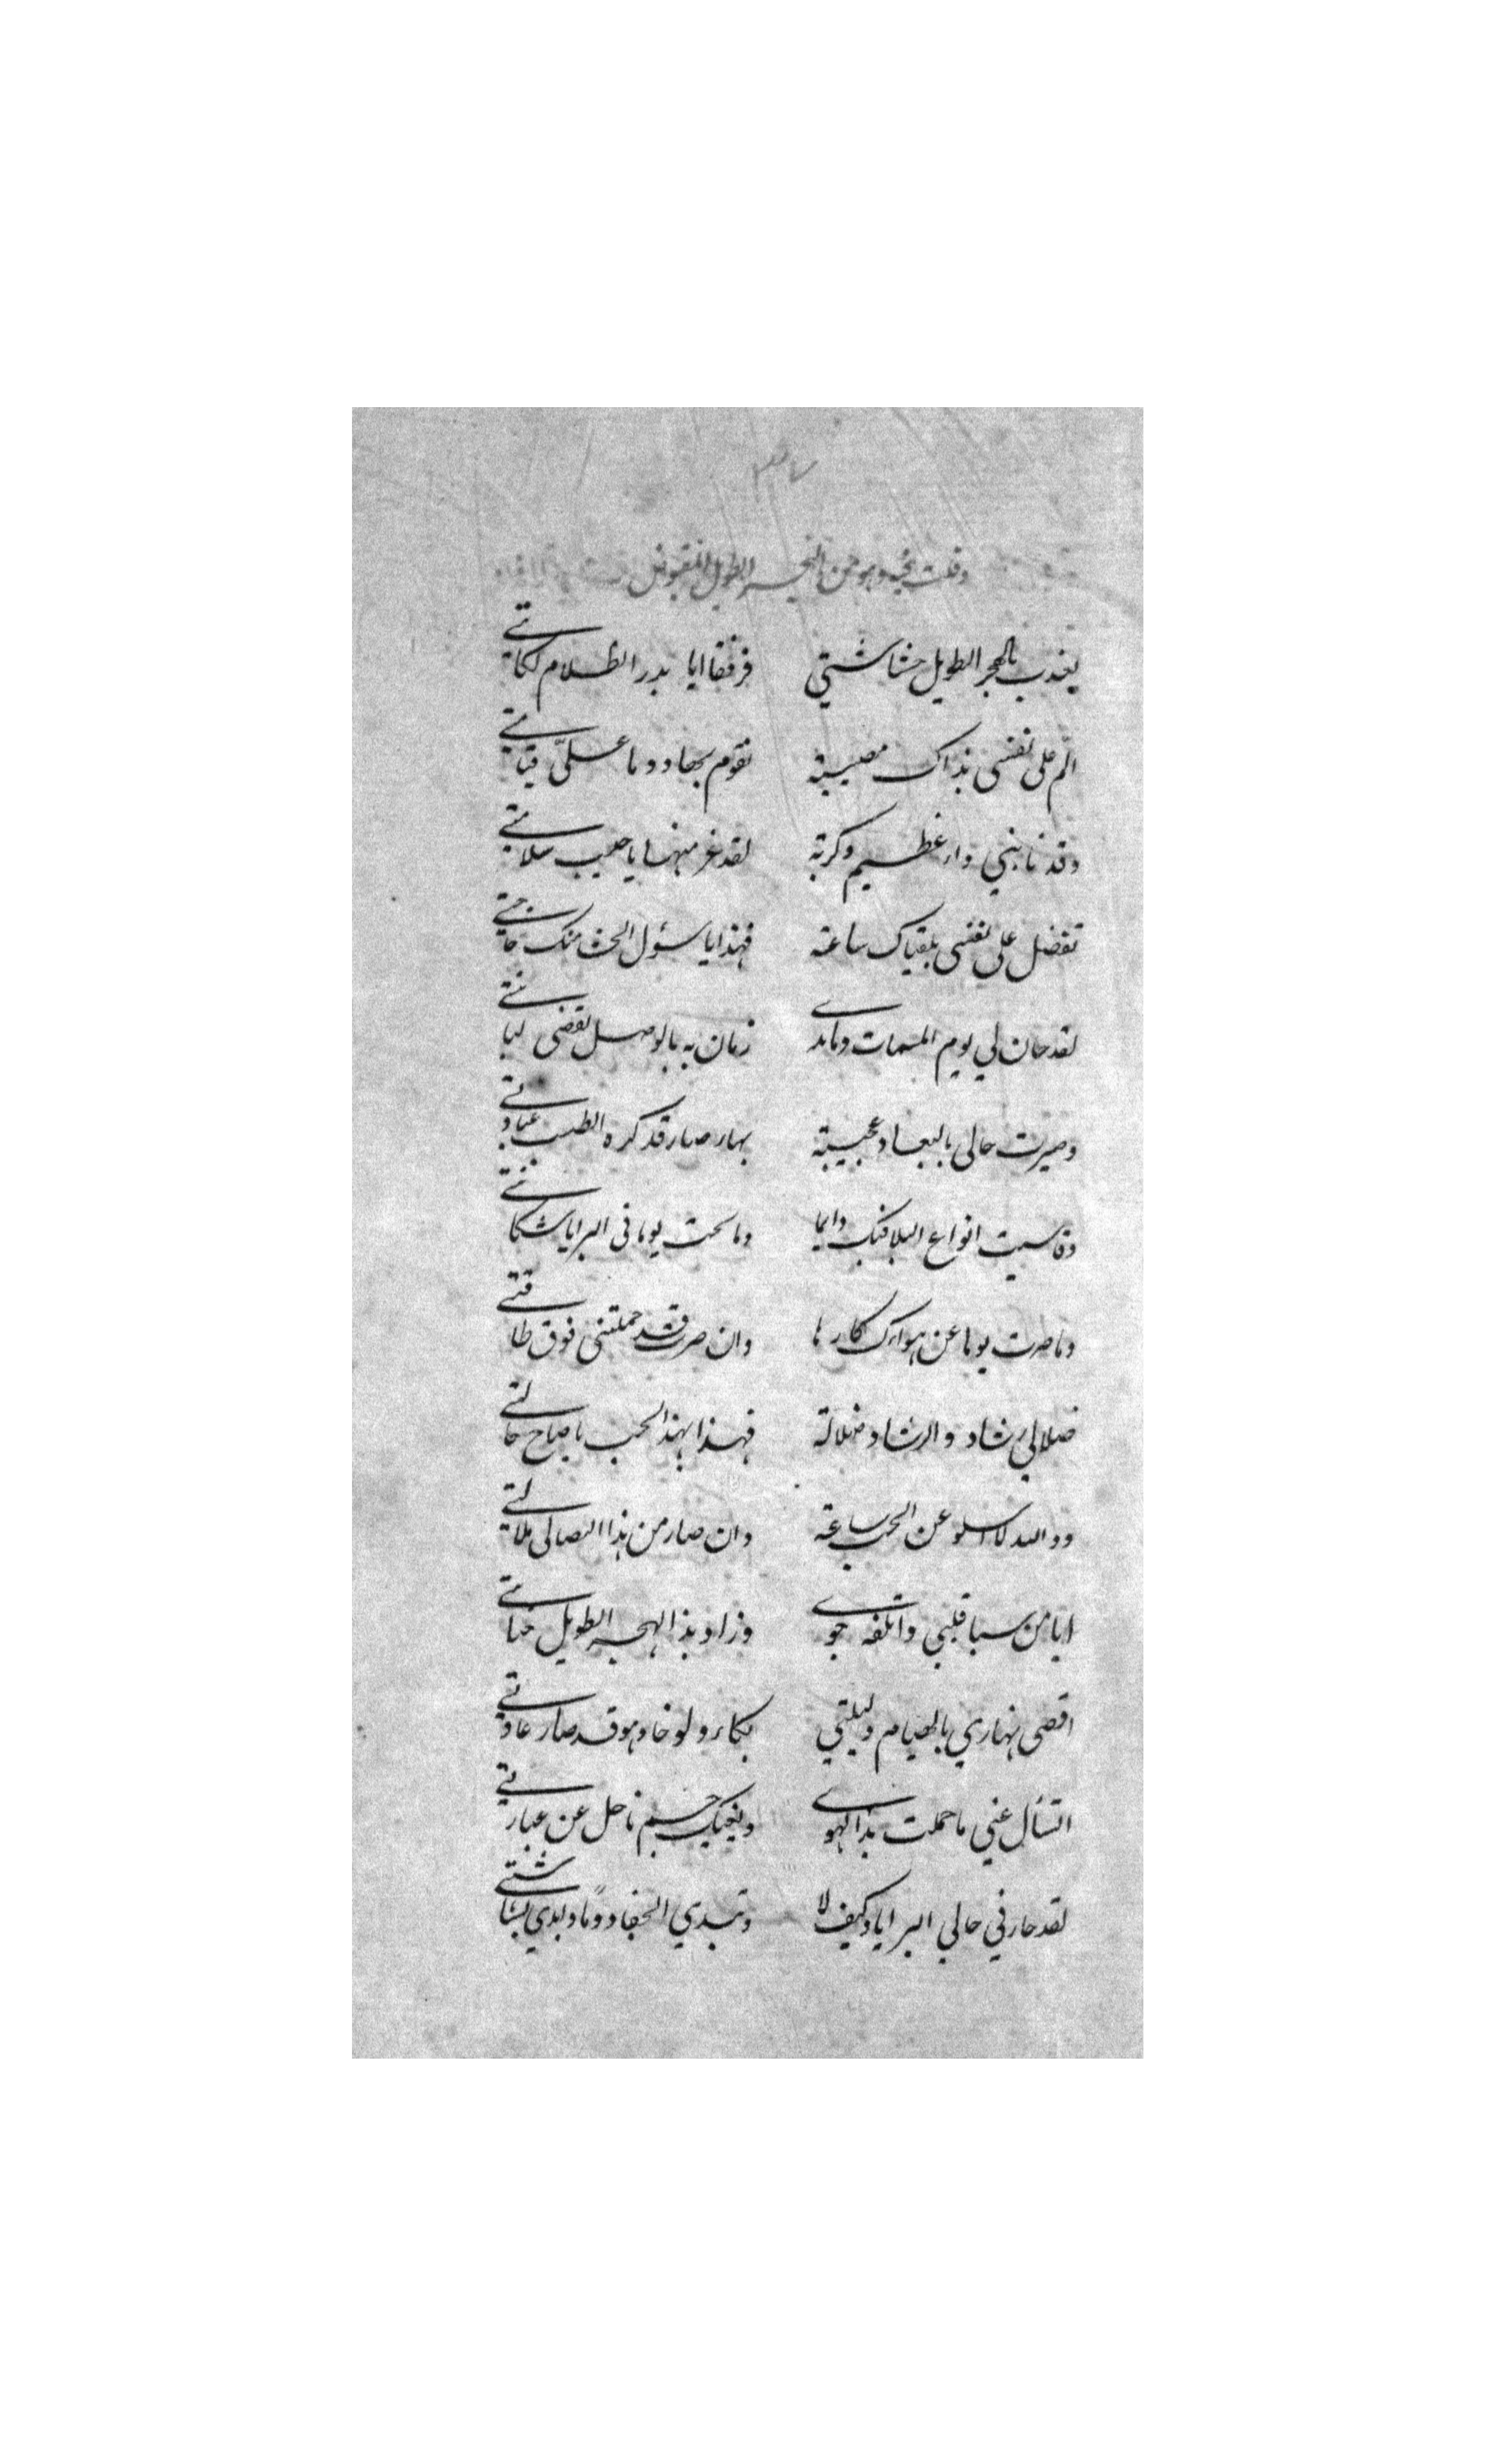 وقلت وهو من البحر الطويل المقبوض
يعذب بالهجر الطويل حشاشتي فرفقا ايا بدر الظلام لكاتي
الم على نفسي بذاك مصيبة تقوم بها دوما علىّ قيامتي
وقد نابني داء عظيم وكربة لقد عز منها يا حبيب سلامتي
تفضل على نفسي بلقياك ساعة فهذا يا سؤل منك حاجتي
لقد حان لي يوم الممات وما بدى زمان به بالوصل تقضى لبانتي
وصيرت حالي بالبعاد عجيبة بها صار قد كره الطبيب عيادتي
وقاسيت انواع البلا فيك دايما وما سمحت يوما في البرايا شكايتي
وما صرت يوما عن هواك كارها وان صرت قد حملتني فوق طاقتي
ضلالي رشاد والرشاد ضلالة فهذا بهذا الحب يا صاح حالتي
ووالله لا اسلو عن الحب ساعة وان صار من هذا التصالي ملالتي
ايا من سبا قلبي واتلفه جوى وزاد بذا الهجر الطويل
اقضى نهاري بالصيام وليلتي بكاء ولو خادهو قد صار عادتي
اتسأل عني ما حملت بذا الهوى وينبيك جسم ناحل عن عبارتي
لقد حار في حالي البرايا وكيف لا وتبدي الجفا دومًا وابدي بشاشتي